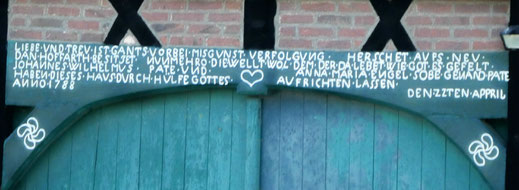 LIEBE VND TREV IST GANTS VORBEI MISGUNST VERFOLGUNG HERSCHET AUFS NEV
HOFFART BESITSET NUNMEHRO DIE WELT WOL DER DA LEBET WIE GOTT ES GEFELT
JOHANNES WILHELMUS PATE VND ANNA MARIA ENGEL SOBE GENAND PATE
HABEN DIESES HAUS DURCH HULFE GOTTES AUFRICHTEN LASSEN
ANNO 1788 DEN 22TEN APPRIL